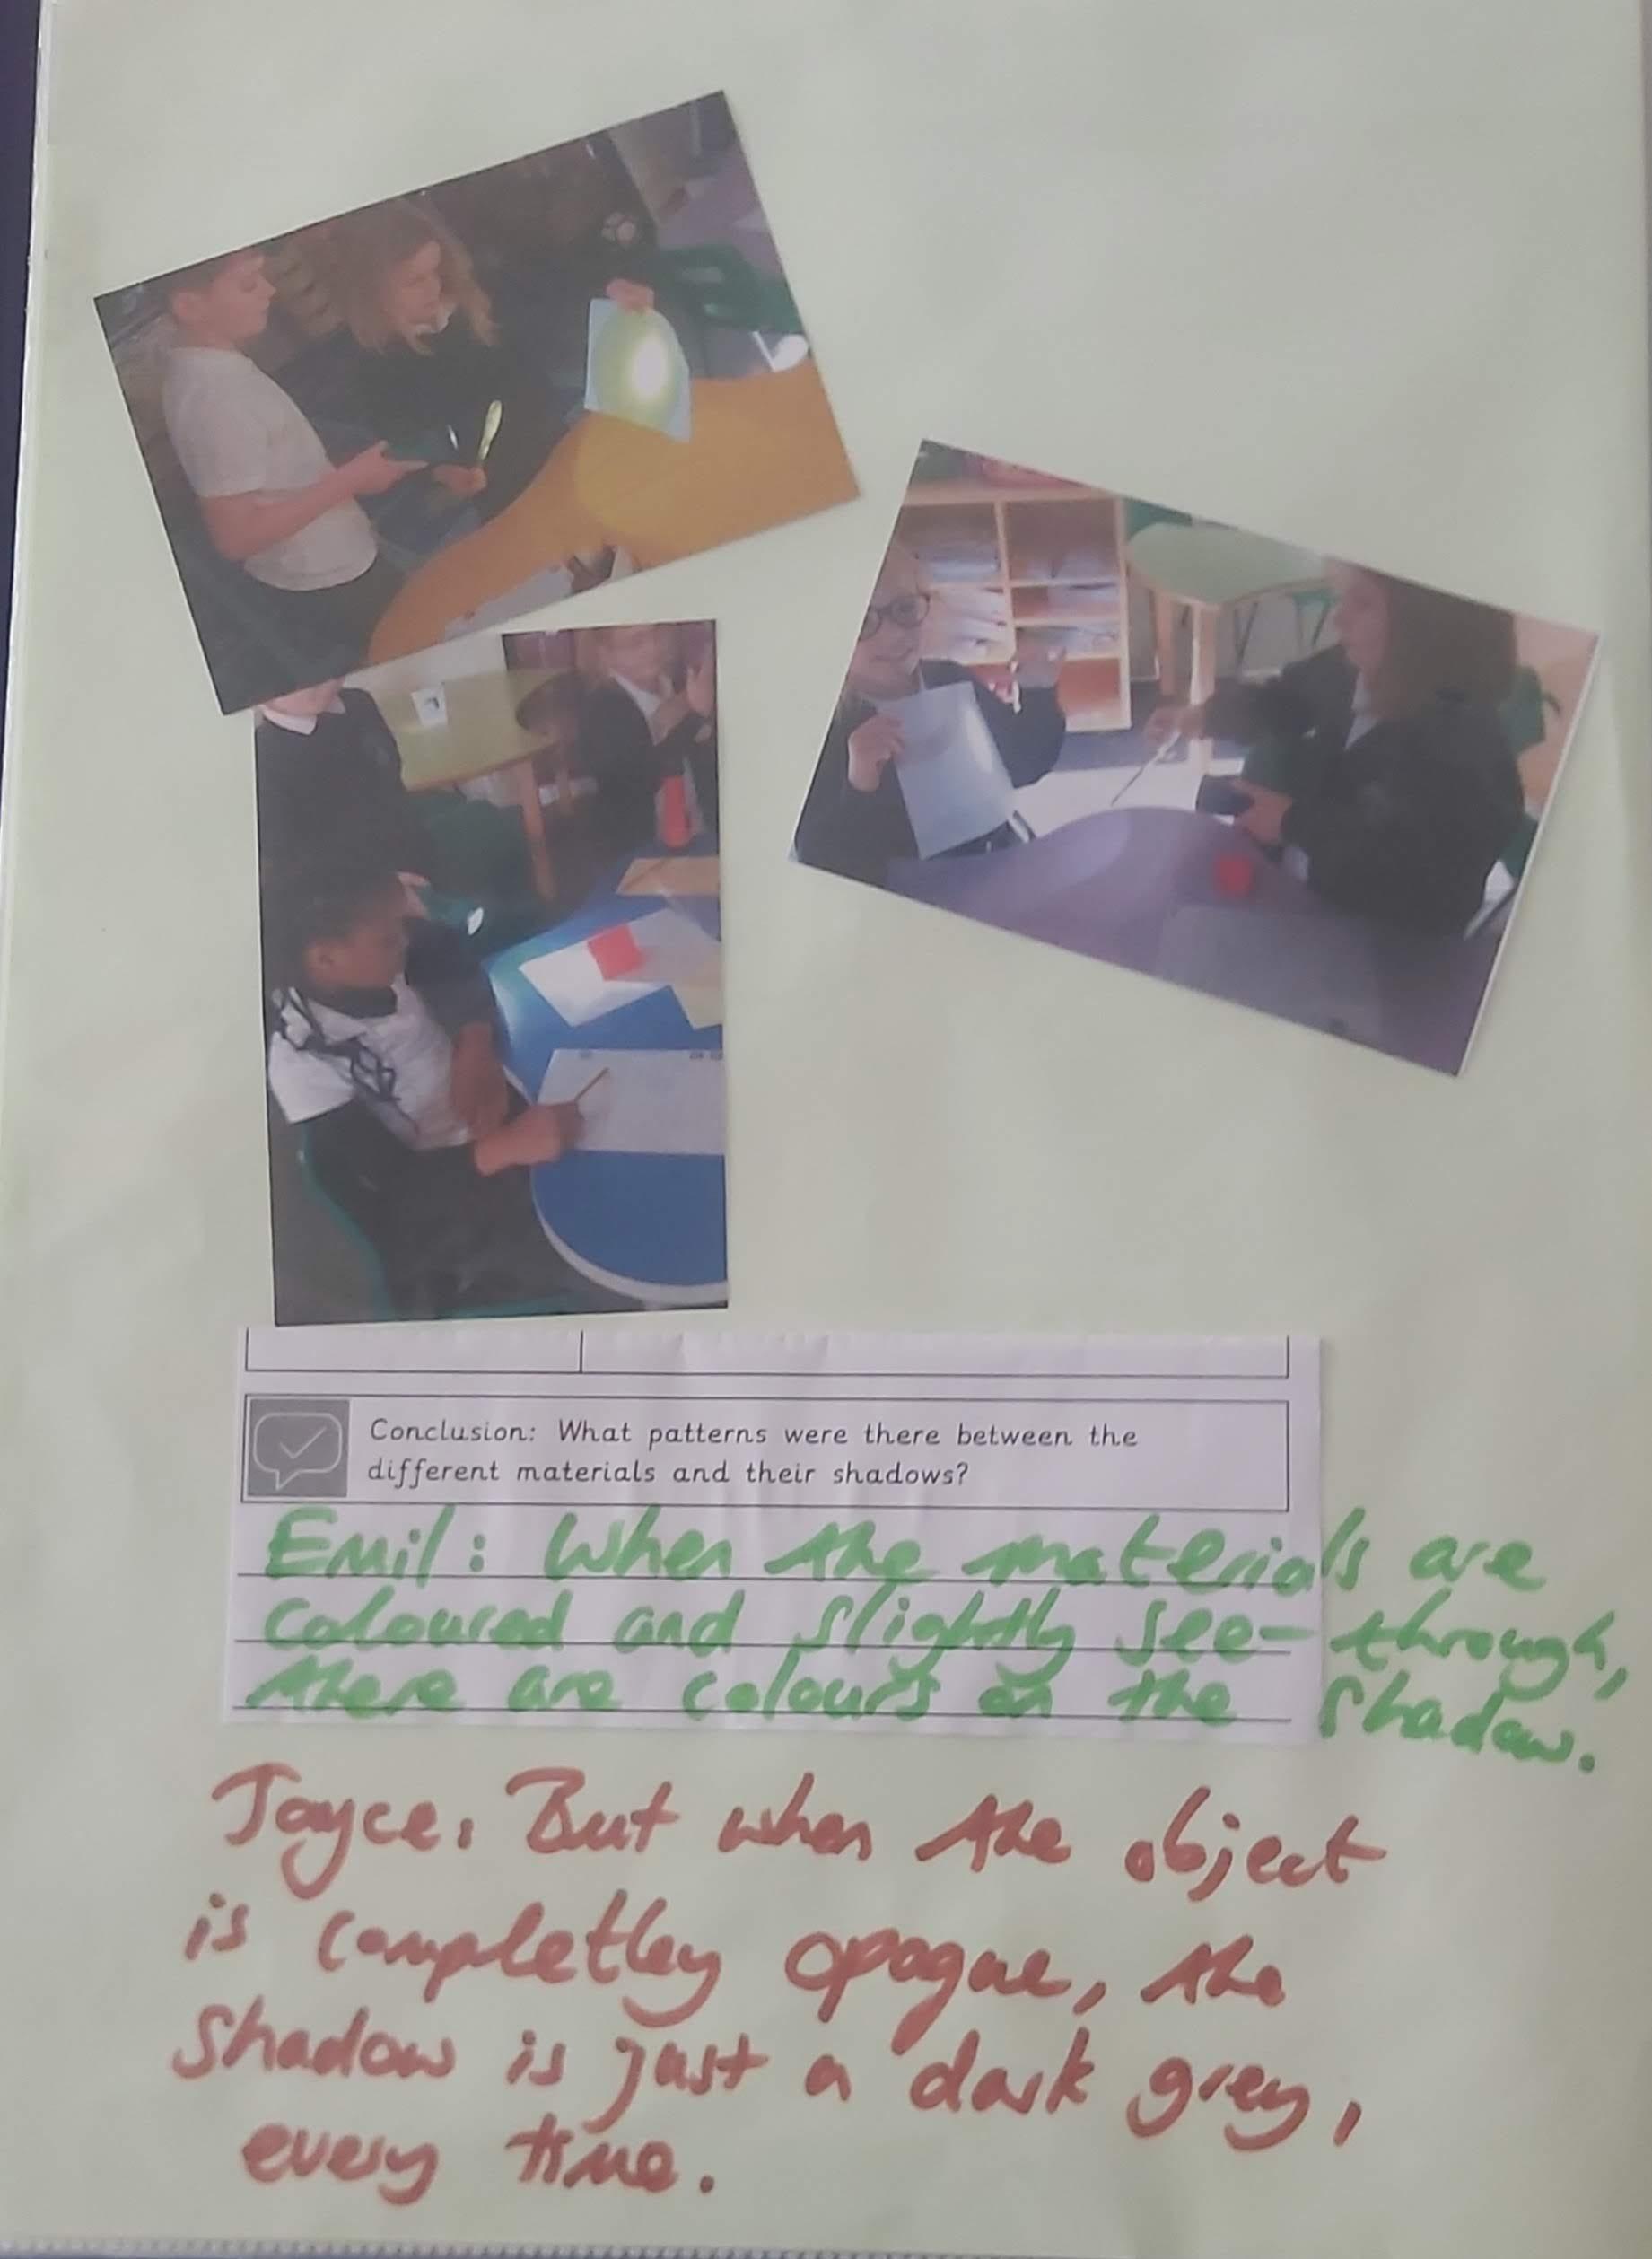 Conclusion: What patterns were there between the
different materials and their shadows?
Emil: When the materials are
coloured and slightly see-through,
there are colours in the shadow.
Jayce: But when the object
is completley opaque, the
shadow is just a dark grey,
every time.